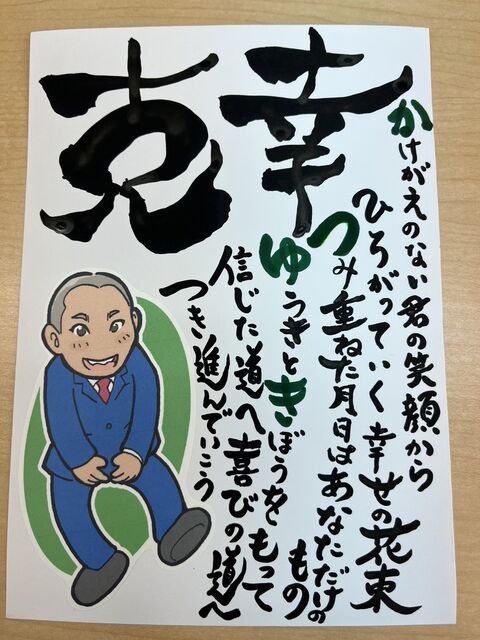 克幸
かけがえのない君の笑顔から
ひろがっていく幸せの花束
つみ重ねた月日はあなただけの
もの
ゆうきときぼうをもって
信じた道へ喜びの道へ
つき進んでいこう